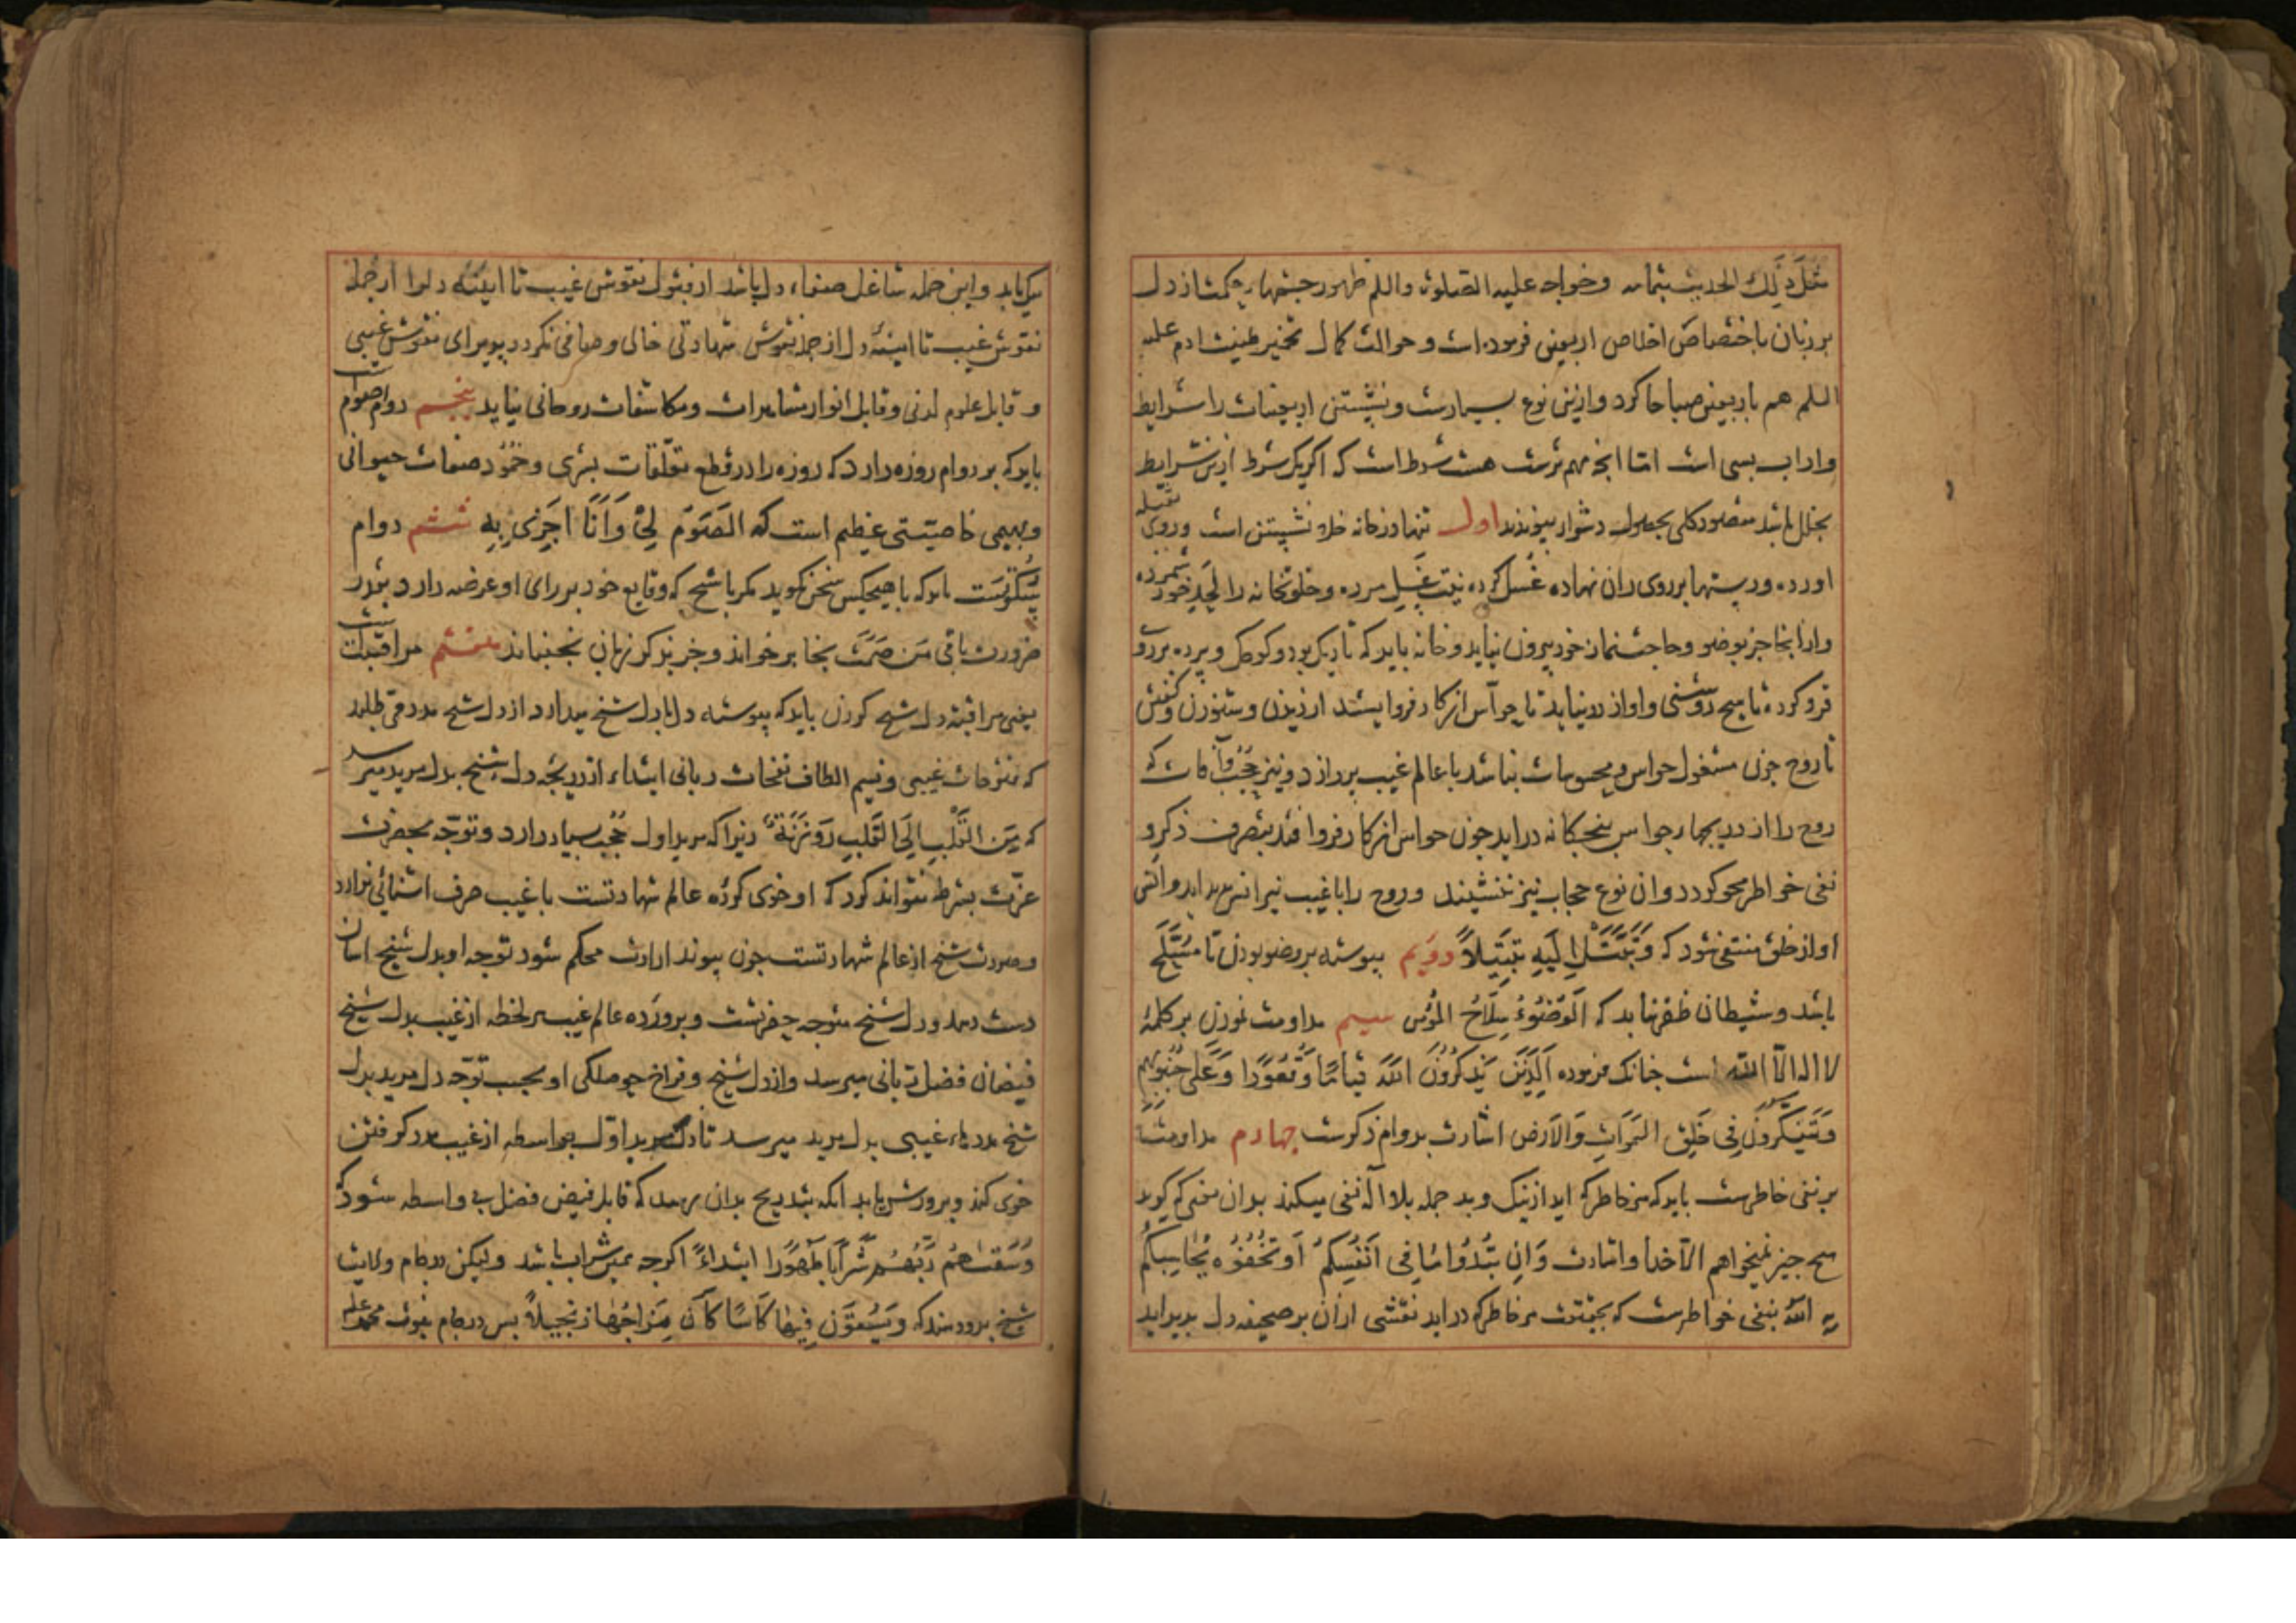 مثل ذلک الحدیث بتمامه وخواجه علیه الصلوة والسلم ظهور چشمهاء حکمت از دل
بر زبان باختصاص اخلاص اربعین فرموده است و حوالت کمال تخمیر طینت ادم علیه
السلم هم باربعین صباحا کرد وازین نوع بسیارست ونشستن اربعینات را شرایط
واداب بسی است امّا انچه مهم ترست هشت شرط است که اکر یک شرط ازین شرایط
بخلل باشد مقصود کلی بحصول دشوار پیوندد اول تنها در خانه خلوة نشستن است وروی بقبله
اورده ودستها بر روی ران نهاده غسل کرده بنیت غسل مرده وخلوتخانه را لحد خود شمرده
واز انجا جز بوضو وحاجت نماز خود بیرون نیاید وخانه باید که تاریک بود وکوچک وپرده بر در
فرو کرده تا هیچ روشنی واواز در نیاید تا حواس از کار فرو ایستد از دیدن وشنودن وکفتن
تا روح چون مشغول حواس ومحسوسات نباشد با عالم غیب پردازد ونیز حجب وآفات که
روح را از دریچهاء حواس پنجکانه دراید چون حواس از کار فرو افتد بتصرف ذکر و
نفی خواطر محو کردد وان نوع حجاب نیز ننشیند وروح را با غیب نیز انس پدید اید وانس
او از خلق منتفی شود که وَتَبَتَّلْ اِلَیْهِ تَبْتِیلاً دویم پیوسته بر وضو بودن تا مُتَسَلِّح
باشد وشیطان ظفر نیابد که اَلْوُضُوءُ سِلَاحُ المؤمن سیم مداومت نمودن بر کلمهٔ
لا اله الّا الله است چنانک فرموده اَلَّذِینَ یَذْکُرُونَ اللّٰهَ قِیَامًا وَقُعُودًا وَعَلَی جُنُوبِهِم
وَیَتَفَکَّرُونَ فِی خَلْقِ السَّمَوَاتِ وَالْاَرْضِ اشارت بدوام ذکرست چهارم مداومت
بر نفی خاطرست باید که هر خاطر که اید از نیک وبد جمله بلا اله نفی میکند بدان معنی که کوید
هیچ چیز نمیخواهم الّا خدا واشارت وَاِنْ تُبْدُوا مَا فِی اَنْفُسِکُمْ اَوْ تُخْفُوهُ یُحَاسِبْکُمْ
بِهِ اللّٰهُ بنفی خواطرست که بحقیقت هر خاطر که در اید نقشی ازان بر صحیفه دل پدید اید
نیک یا بد واین جمله شاغل صفاء دل باشد از قبول نقوش غیب تا ایینه دل را از جمله
نقوش غیب تا ایینه دل از جمله نقوش شهادتی خالی وصافی نکردد پذیرای نقوش غیبی
و قابل علوم لدنی وقابل انوار مشاهدات ومکاشفات روحانی نیاید پنجم دوام صوم است
باید که بر دوام روزه دارد که روزه را در قطع تعلّقات بشری وخمود صفات حیوانی
وبهیمی خاصیّتی عظیم است که الصَّوْمُ لِیْ وَاَنَا اَجْزِی بِهِ ششم دوام
سُکُوتست باید که با هیچکس سخن نکوید مکر با شیخ که وقایع خود بر رای او عرضه دارد بقدر
ضرورت باقی مَن صَمَتَ نجا بر خواند وجز بذکر زبان نجنباند هفتم مراقبت است
یعنی مراقبت دل شیخ کردن باید که پیوسته دل با دل شیخ میدارد از دل شیخ مدد می طلبد
که فتوحات غیبی ونسیم الطاف نفحات ربانی ابتداء از دریچه دل شیخ بدل مرید میرسد
که مِنَ الْقَلْبِ اِلَی الْقَلْبِ رَوْزَنَةً زیرا که مرید اول حُجُب بسیار دارد وتوجّه بحضرت
عزّت بشرط نتواند کرد که او خوی کرده عالم شهادتست با غیب صرف اشنائی ندارد
وصورت شیخ از عالم شهادتست چون پیوند ارادت محکم شود توجه او بدل شیخ اسان
دست دهد ودل شیخ متوجه حضرتست وپرورده عالم غیب هر لحظه از غیب بدل شیخ
فیضان فضل ربانی میرسد واز دل شیخ وفراخ حوصلکی او بحسب توجّه دل مرید بدل
شیخ مددهاء غیبی بدل مرید میرسد تا دل مرید اوّل بواسطه از غیب مدد کرفتن
خوی کند وپرورش یابد انکه بتدریج بدان رسد که قابل فیض فضل بی واسطه شود که
وَسَقٰیهُمْ رَبُّهُمْ شَرَابًا طَهُورًا ابتداءً اکرچه همین شراب باشد ولیکن در جام ولایت
شیخ بدو دهند که وَیُسْقَوْنَ فِیهَا کَأْسًا کَانَ مِزَاجُهَا زنجبیلاً پس در جام نبوت محمد علیه